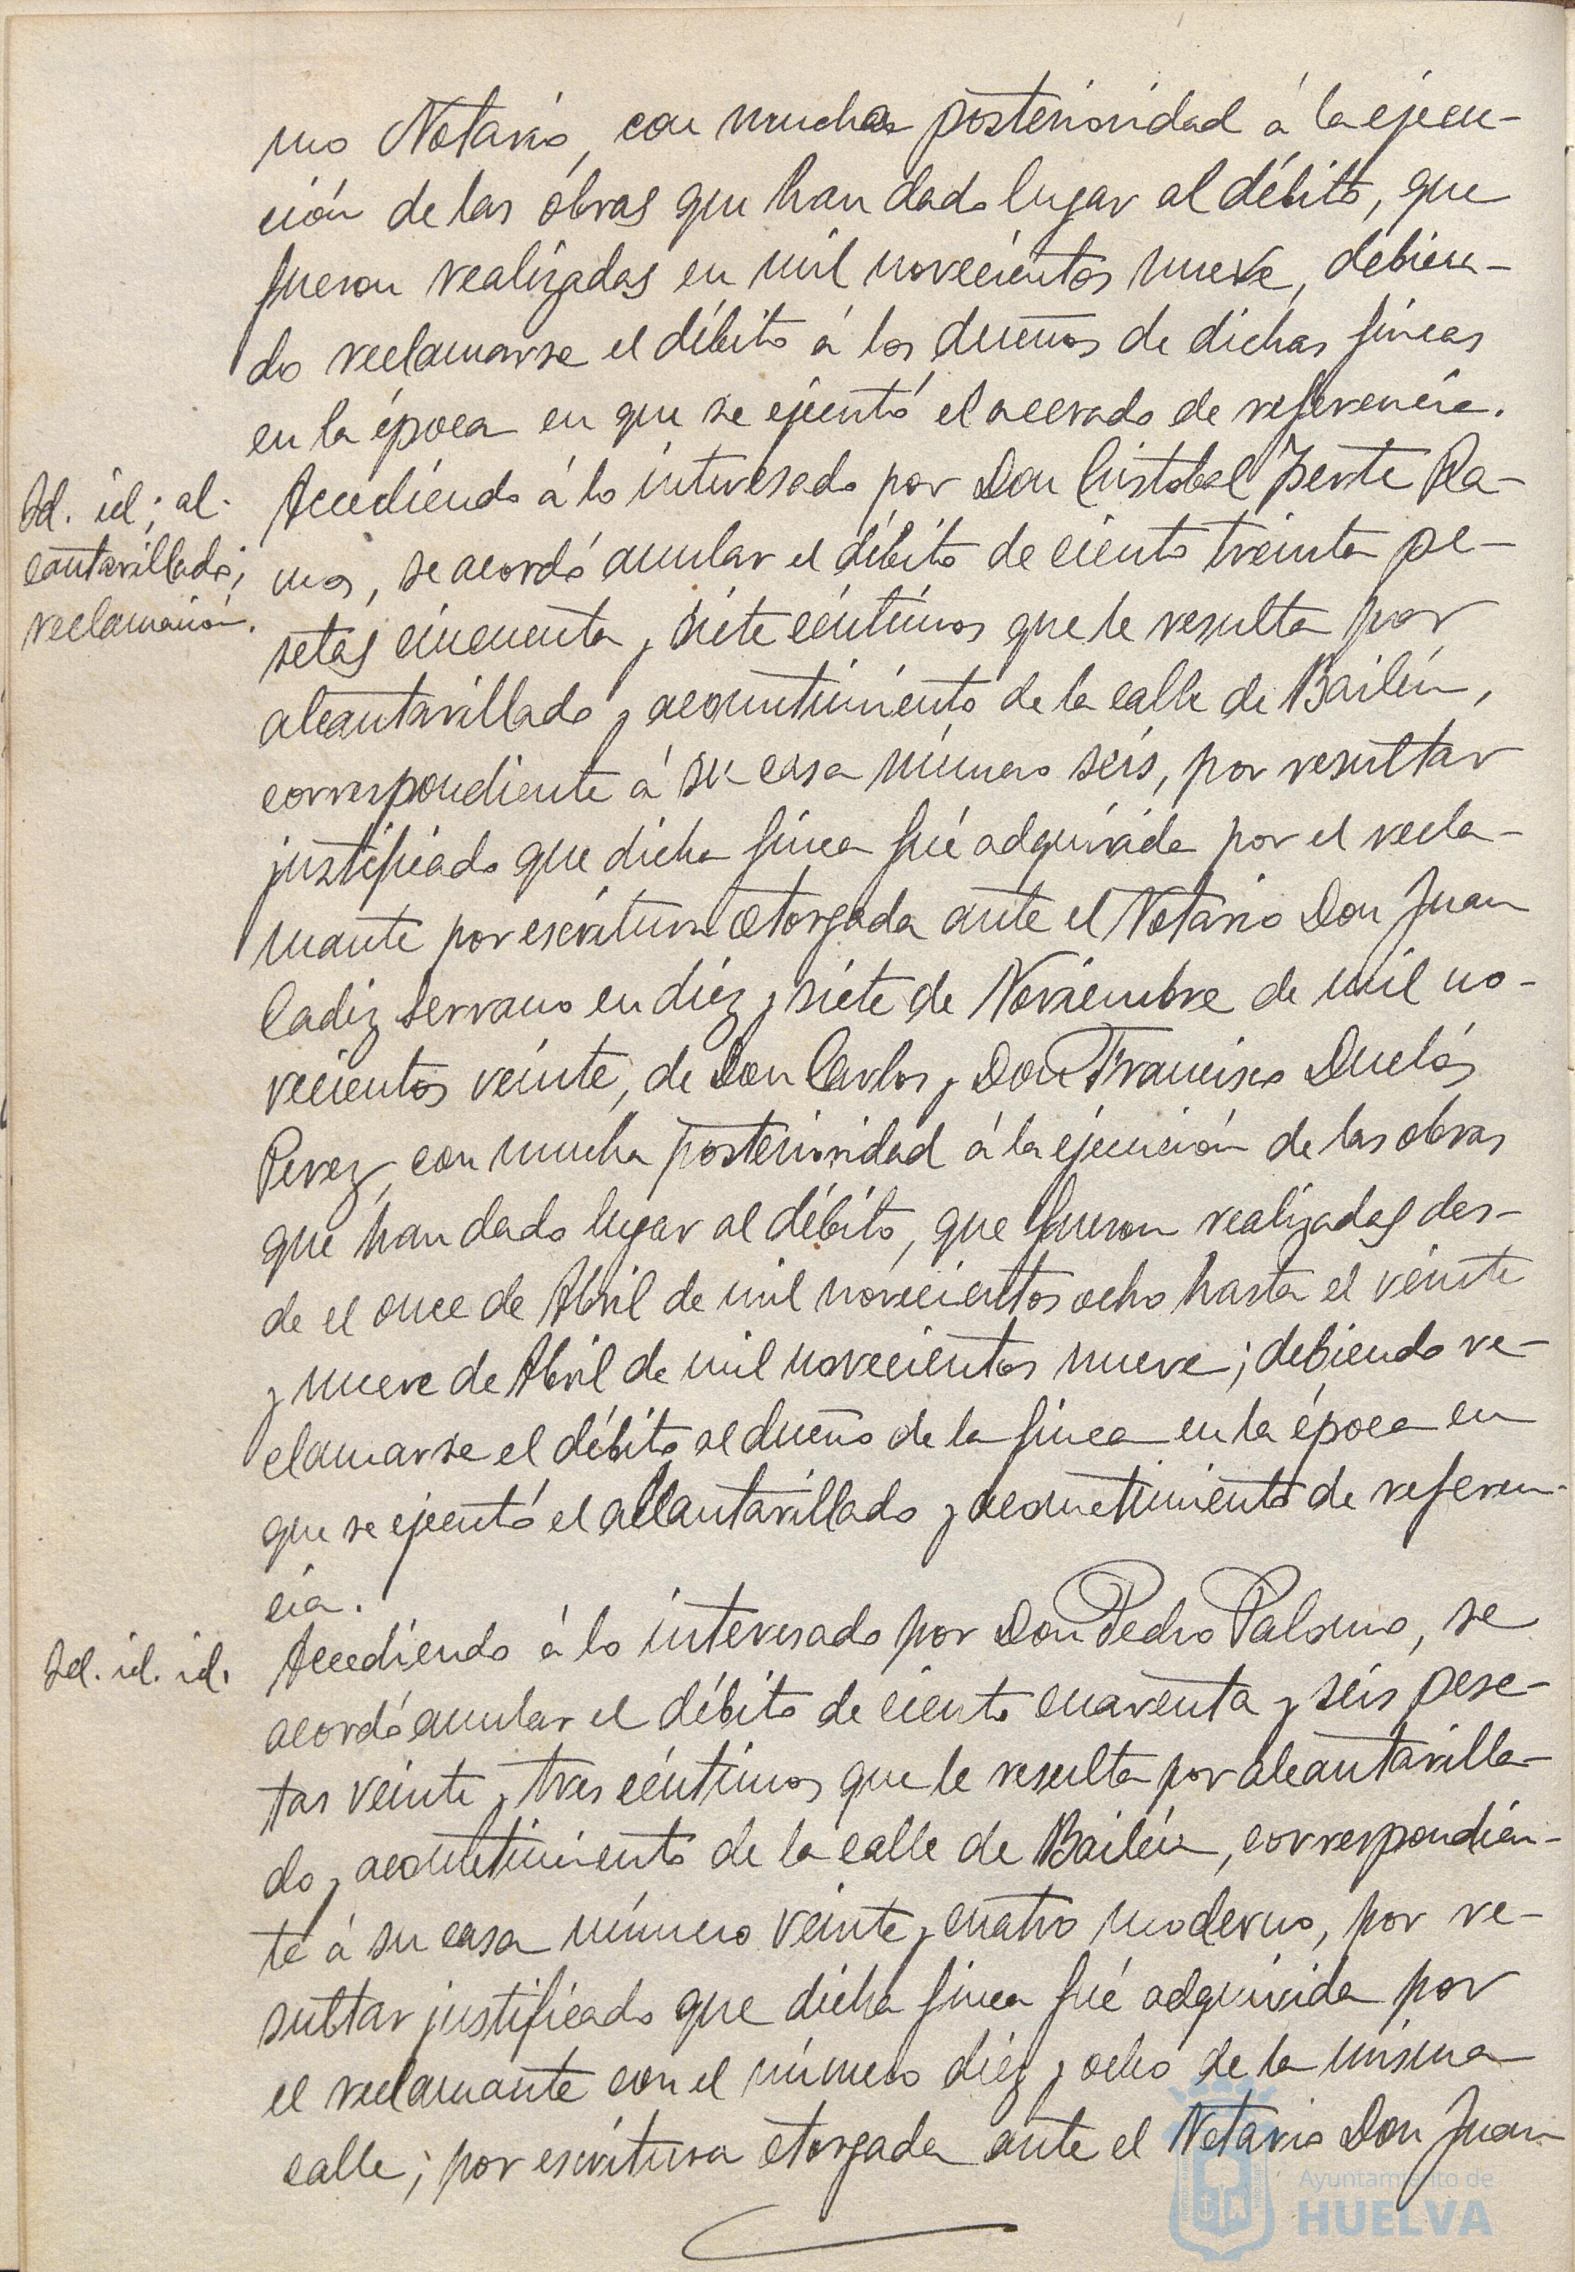 mo Notario, con mucha posterioridad á la ejecu-
ción de las obras que han dado lugar al débito, que
fueron realizadas en mil novecientos nueve, debien-
do reclamarse el débito á los dueños de dichas fincas
en la época en que se ejecutó el acerado de referencia.
Id. id; al-
cantarillado;
reclamación.
Accediendo á lo interesado por Don Cristobal Jente Ra-
mos, se acordó anular el débito de ciento treinta pe-
setas cincuenta y siete céntimos que le resulta por
alcantarillado y acometimiento de la calle de Bailén,
correspondiente á su casa número seis, por resultar
justificado que dicha finca fué adquirida por el recla-
mante por escritura otorgada ante el Notario Don Juan
Cadiz Serrano en diez y siete de Noviembre de mil no-
vecientos veinte, de Don Carlos y Don Francisco Duclós
Perez, con mucha posterioridad á la ejecución de las obras
que han dado lugar al débito, que fueron realizadas des-
de el once de Abril de mil novecientos ocho hasta el veinte
y nueve de Abril de mil novecientos nueve; debiendo re-
clamarse el débito al dueño de la finca en la época en
que se ejecutó el alcantarillado y acometimiento de referen-
cia.
Id. id. id.
Accediendo á lo interesado por Don Pedro Palomo, se
acordó anular el débito de ciento cuarenta y seis pese-
tas veinte y tres céntimos que le resulta por alcantarilla-
do y acometimiento de la calle de Bailén, correspondien-
te á su casa número veinte y cuatro moderno, por re-
sultar justificado que dicha finca fué adquirida por
el reclamante con el número diez y ocho de la misma
calle; por escritura otorgada ante el Notario Don Juan
Ayuntamiento de
HUELVA